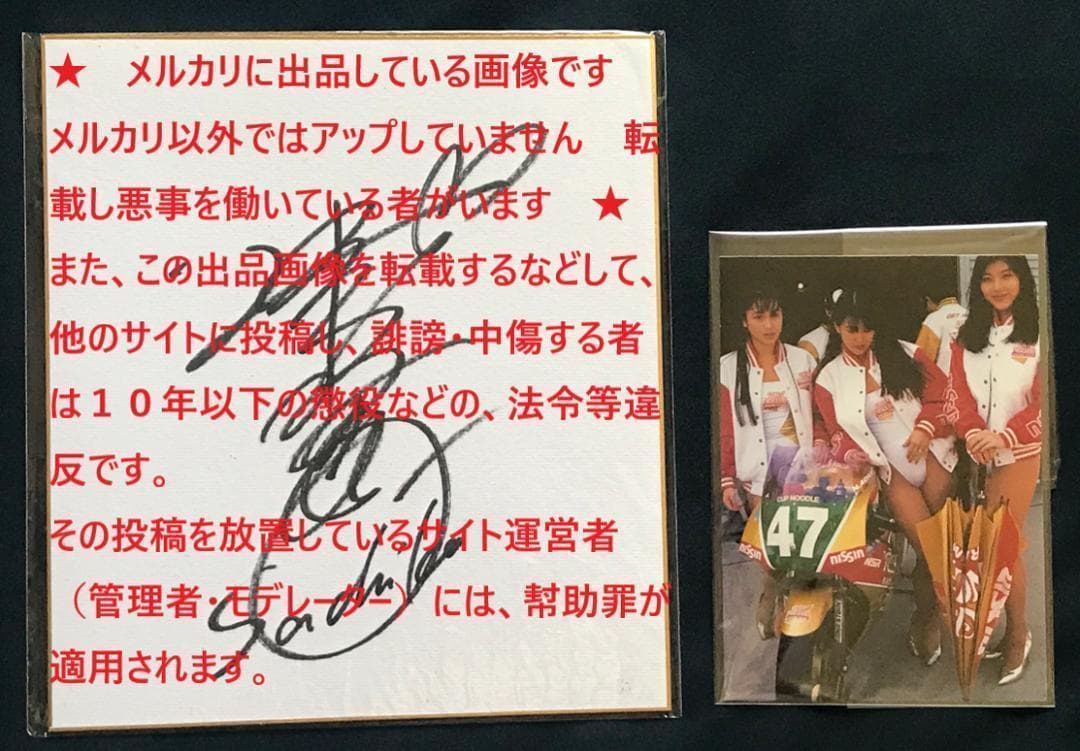 ★ メルカリに出品している画像です
メルカリ以外ではアップしていません 転
載し悪事を働いている者がいます ★
また、この出品画像を転載するなどして、
他のサイトに投稿し、誹謗・中傷する者
は１０年以下の懲役などの、法令等違
反です。
その投稿を放置しているサイト運営者
（管理者・モデレーター）には、幇助罪が
適用されます。
CUP NOODLE
47
nissin
nissin
NSR